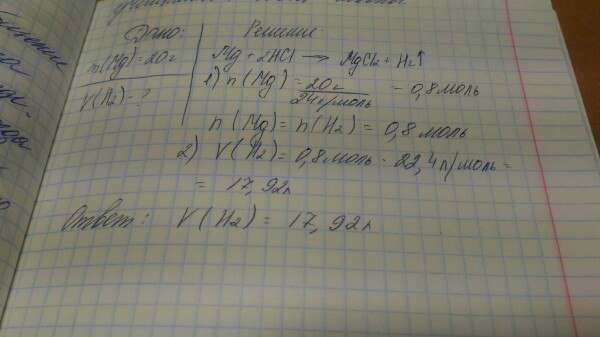 Дано:
Решение
m(Mg)=20г
V(H2)-?
Mg + 2HCl → MgCl2 + H2↑
1) n(Mg) = 20г / 24г/моль - 0,8 моль
n(Mg) = n(H2) = 0,8 моль
2) V(H2) = 0,8 моль · 22,4 л/моль =
= 17,92л
Ответ: V(H2) = 17,92л